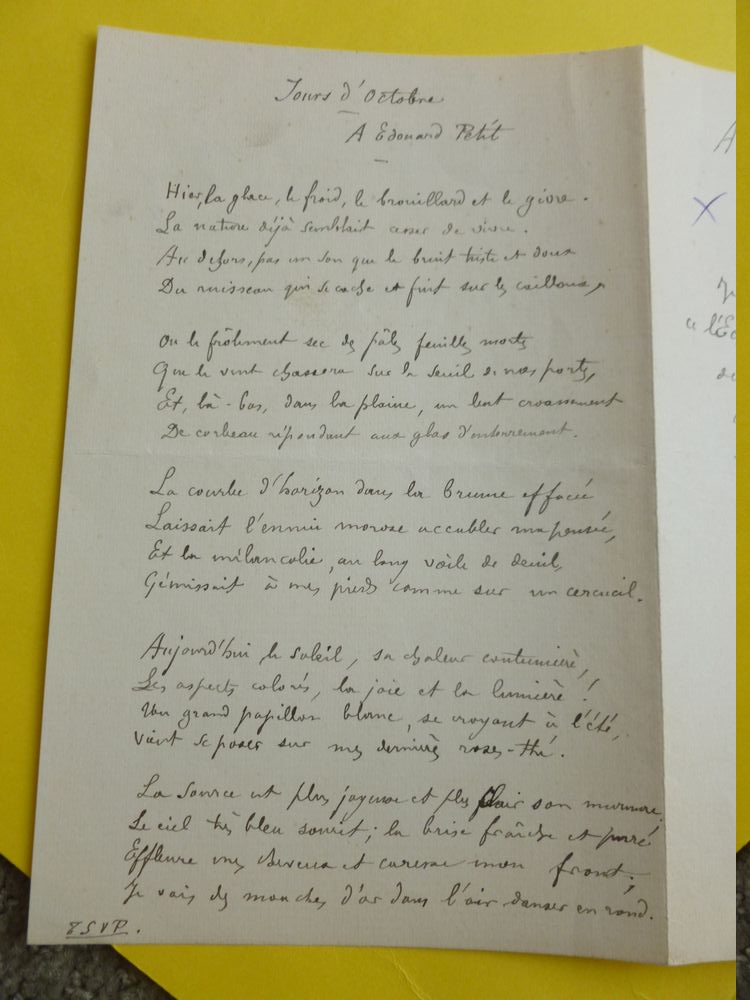 Jours d'Octobre
A Edouard Petit
Hier, la glace, le froid, le brouillard et le givre.
La nature déjà semblait cesser de vivre.
Au dehors, pas un son que le bruit triste et doux
Du ruisseau qui se cache et fuit sur les cailloux,
Ou le frôlement sec des pâles feuilles mortes
Que le vent chassera sur le seuil de nos portes,
Et, là-bas, dans la plaine, un lent croassement
De corbeau répondant aux glas d'enterrement.
La courbe d'horizon dans la brume effacée
Laissait l'ennui morose accabler ma pensée,
Et la mélancolie, au long voile de deuil,
Gémissait à mes pieds comme sur un cercueil.
Aujourd'hui le soleil, sa chaleur coutumière,
Les aspects colorés, la joie et la lumière !
Un grand papillon blanc, se croyant à l'été,
Vient se poser sur mes dernières roses-thé.
La source est plus joyeuse et plus clair son murmure,
Le ciel très bleu sourit ; la brise fraîche et pure
Effleure mes cheveux et caresse mon front ;
Je vois des mouches d'or dans l'air danser en rond.
TSVP.
A
X
à l'E